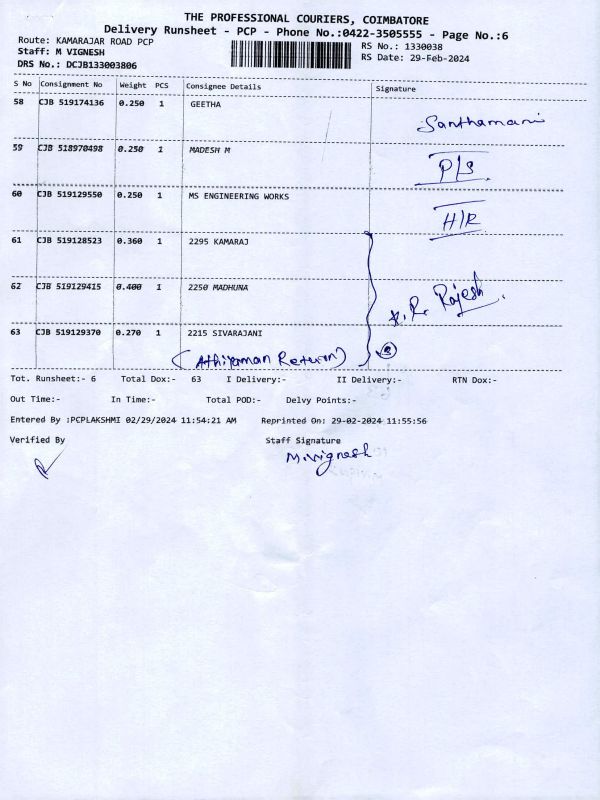 THE PROFESSIONAL COURIERS, COIMBATORE
Delivery Runsheet - PCP - Phone No.:0422-3505555 - Page No.:6
Route: KAMARAJAR ROAD PCP
RS No.: 1330038
Staff: M VIGNESH
RS Date: 29-Feb-2024
DRS No.: DCJB133003806
S No Consignment No Weight PCS Consignee Details Signature
58 CJB 519174136 0.250 1 GEETHA Santhamani
59 CJB 518970498 0.250 1 MADESH M P/S
60 CJB 519129550 0.250 1 MS ENGINEERING WORKS H/R
61 CJB 519128523 0.360 1 2295 KAMARAJ
62 CJB 519129415 0.400 1 2250 MADHUNA R. Rajesh
63 CJB 519129370 0.270 1 2215 SIVARAJANI
(Athiyaman Return)
Tot. Runsheet:- 6 Total Dox:- 63 I Delivery:- II Delivery:- RTN Dox:-
Out Time:- In Time:- Total POD:- Delvy Points:-
Entered By :PCPLAKSHMI 02/29/2024 11:54:21 AM Reprinted On: 29-02-2024 11:55:56
Verified By Staff Signature
M.Vignesh